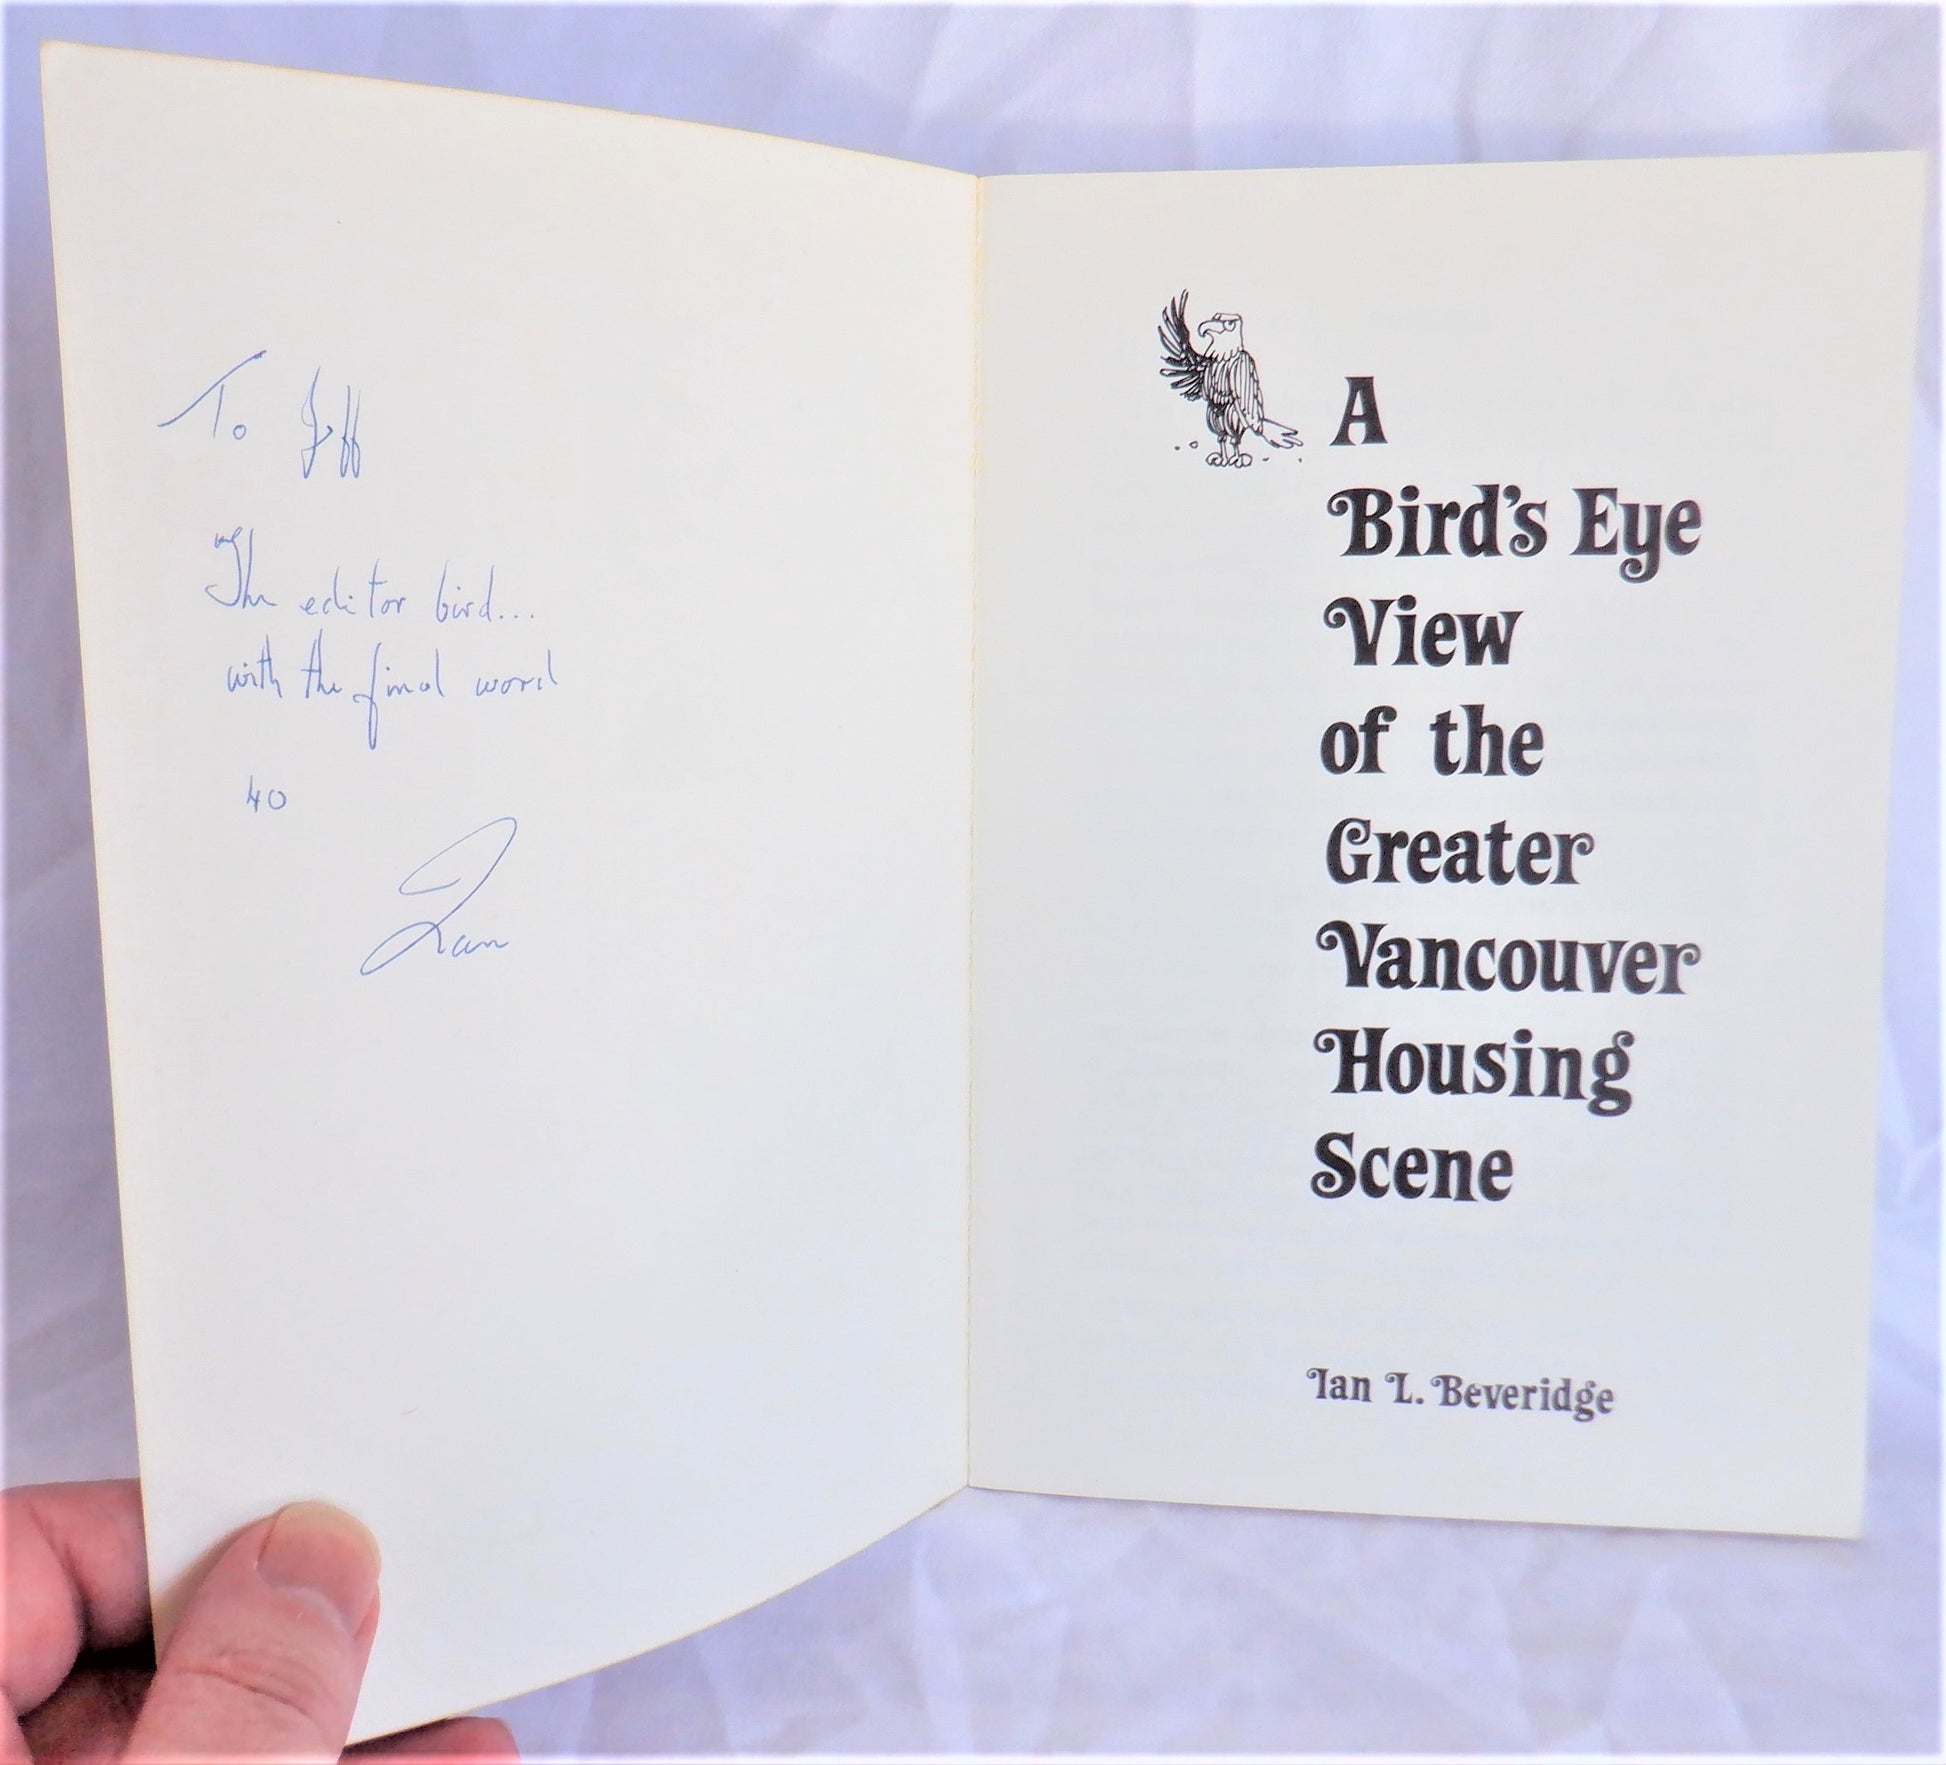 To Jeff
The editor bird...
with the final word
40
Ian
A
Bird's Eye
View
of the
Greater
Vancouver
Housing
Scene
Ian L. Beveridge